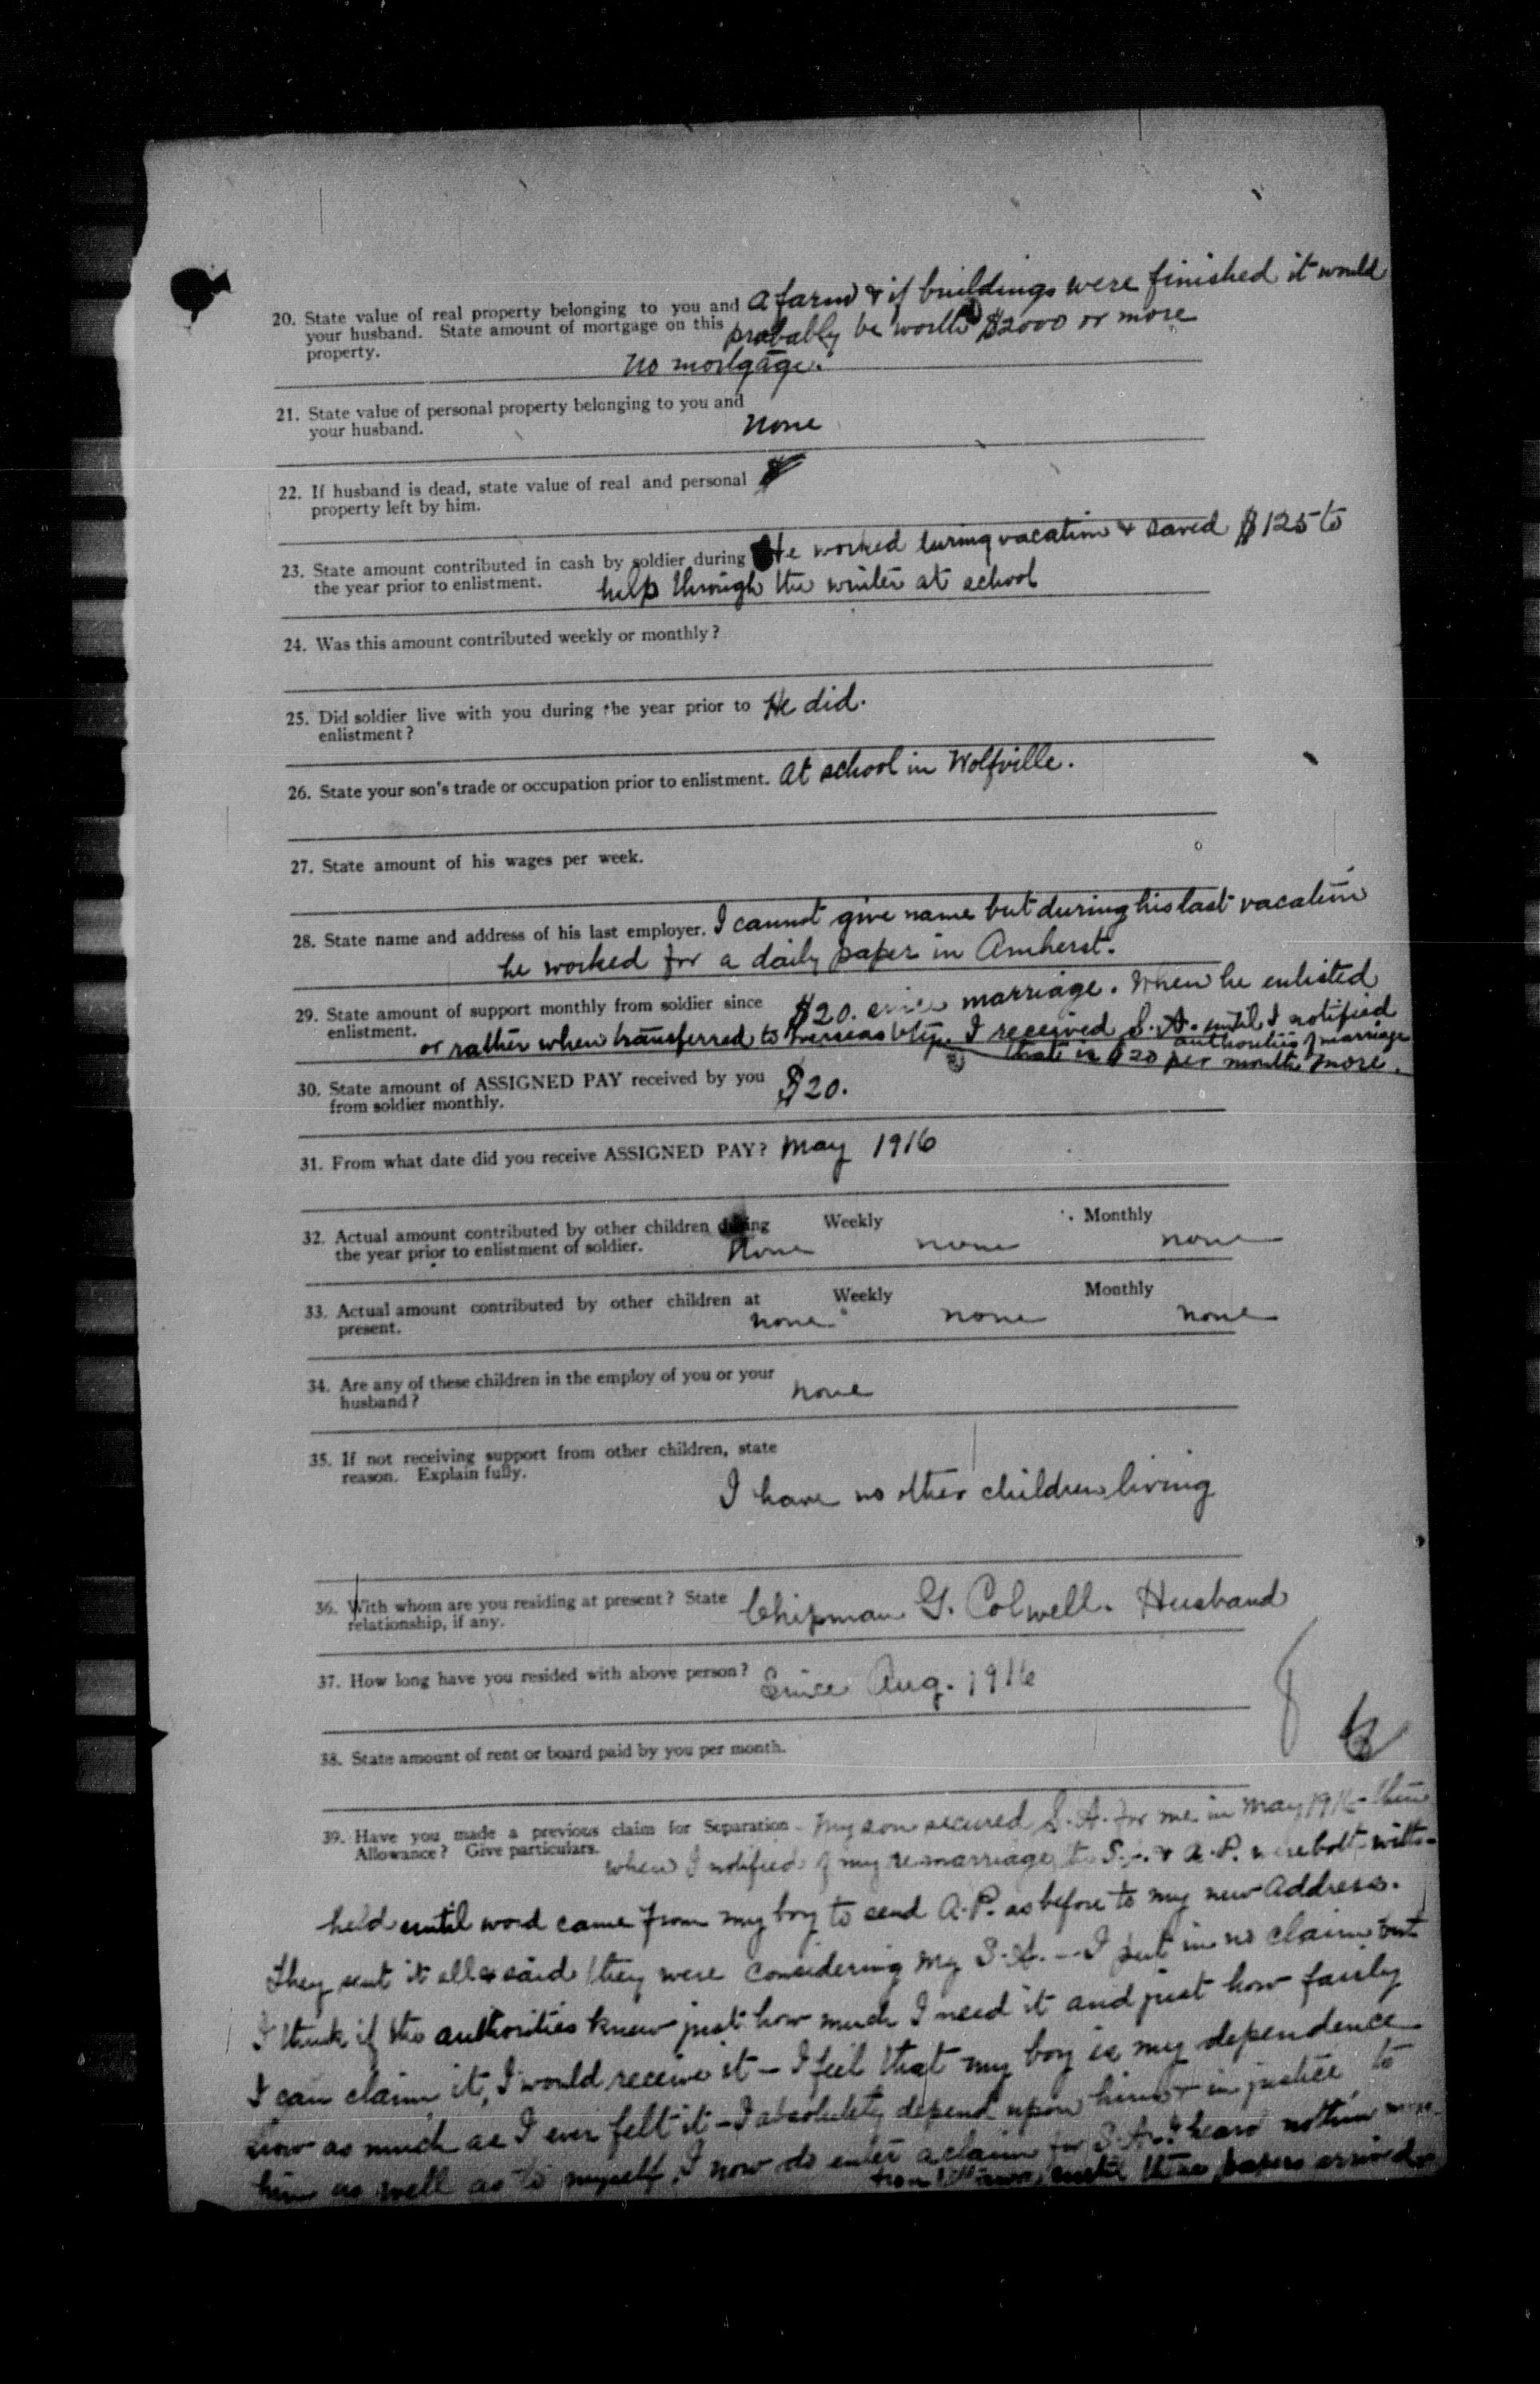 20. State value of real property belonging to you and A farm & if buildings were finished it would
your husband. State amount of mortgage on this probably be worth $2000 or more
property. No mortgage.
21. State value of personal property belonging to you and
your husband. None
22. If husband is dead, state value of real and personal
property left by him.
23. State amount contributed in cash by soldier during He worked during vacation & saved $125 to
the year prior to enlistment. help through the winter at school
24. Was this amount contributed weekly or monthly?
25. Did soldier live with you during the year prior to He did.
enlistment?
26. State your son's trade or occupation prior to enlistment. At school in Wolfville.
27. State amount of his wages per week.
28. State name and address of his last employer. I cannot give name but during his last vacation
he worked for a daily paper in Amherst.
29. State amount of support monthly from soldier since $20. since marriage. When he enlisted
enlistment. or rather when transferred to Overseas I received S.A. until I notified
authorities of marriage
that is $20 per month more.
30. State amount of ASSIGNED PAY received by you $20.
from soldier monthly.
31. From what date did you receive ASSIGNED PAY? May 1916
32. Actual amount contributed by other children during Weekly Monthly
the year prior to enlistment of soldier. None none none
33. Actual amount contributed by other children at Weekly Monthly
present. none none none
34. Are any of these children in the employ of you or your none
husband?
35. If not receiving support from other children, state
reason. Explain fully.
I have no other children living
36. With whom are you residing at present? State Chipman G. Colwell. Husband
relationship, if any.
37. How long have you resided with above person? Since Aug. 1916
38. State amount of rent or board paid by you per month.
39. Have you made a previous claim for Separation My son secured S.A. for me in May 1916 - then
Allowance? Give particulars. when I notified of my remarriage the S.A. & A.P. were both with-
held until word came from my boy to send A.P. as before to my new address.
They sent it all & said they were considering my S.A. - I put in no claim but
I think if the authorities knew just how much I need it and just how fairly
I can claim it, I would receive it - I feel that my boy is my dependence
now as much as I ever felt it - I absolutely depend upon him & in justice to
him as well as to myself, I now do enter a claim for S.A. I heard nothing more
from Ottawa, until these papers arrived